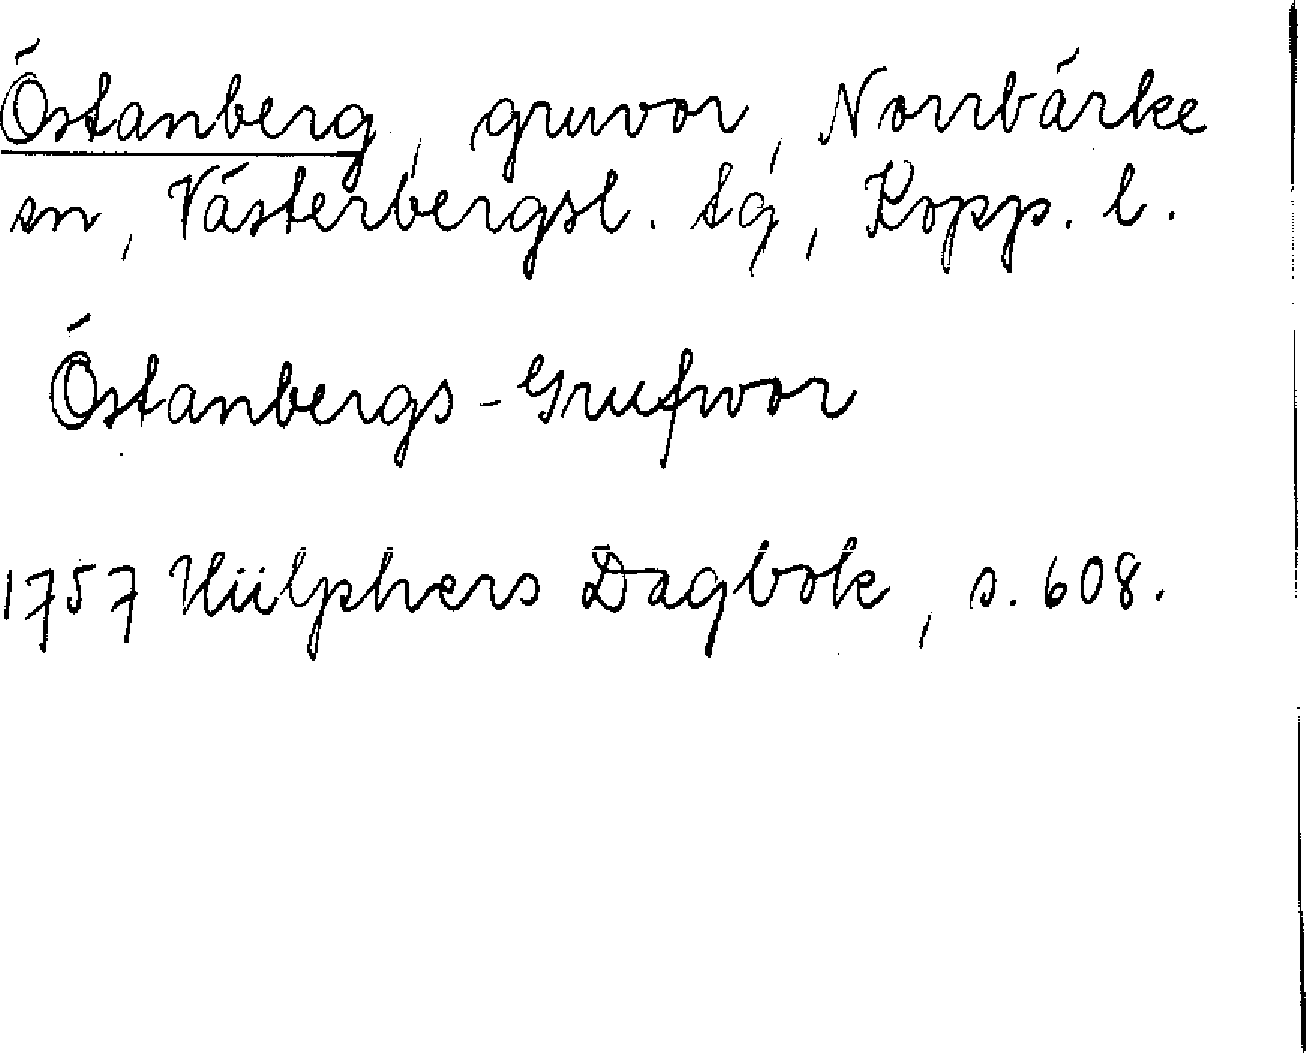 Östanberg, gruvor, Norrbärke
sn, Västerbergsl. tg, Kopp. l.
Östanbergs-Grufwor
1757 Hülphers Dagbok, s. 608.